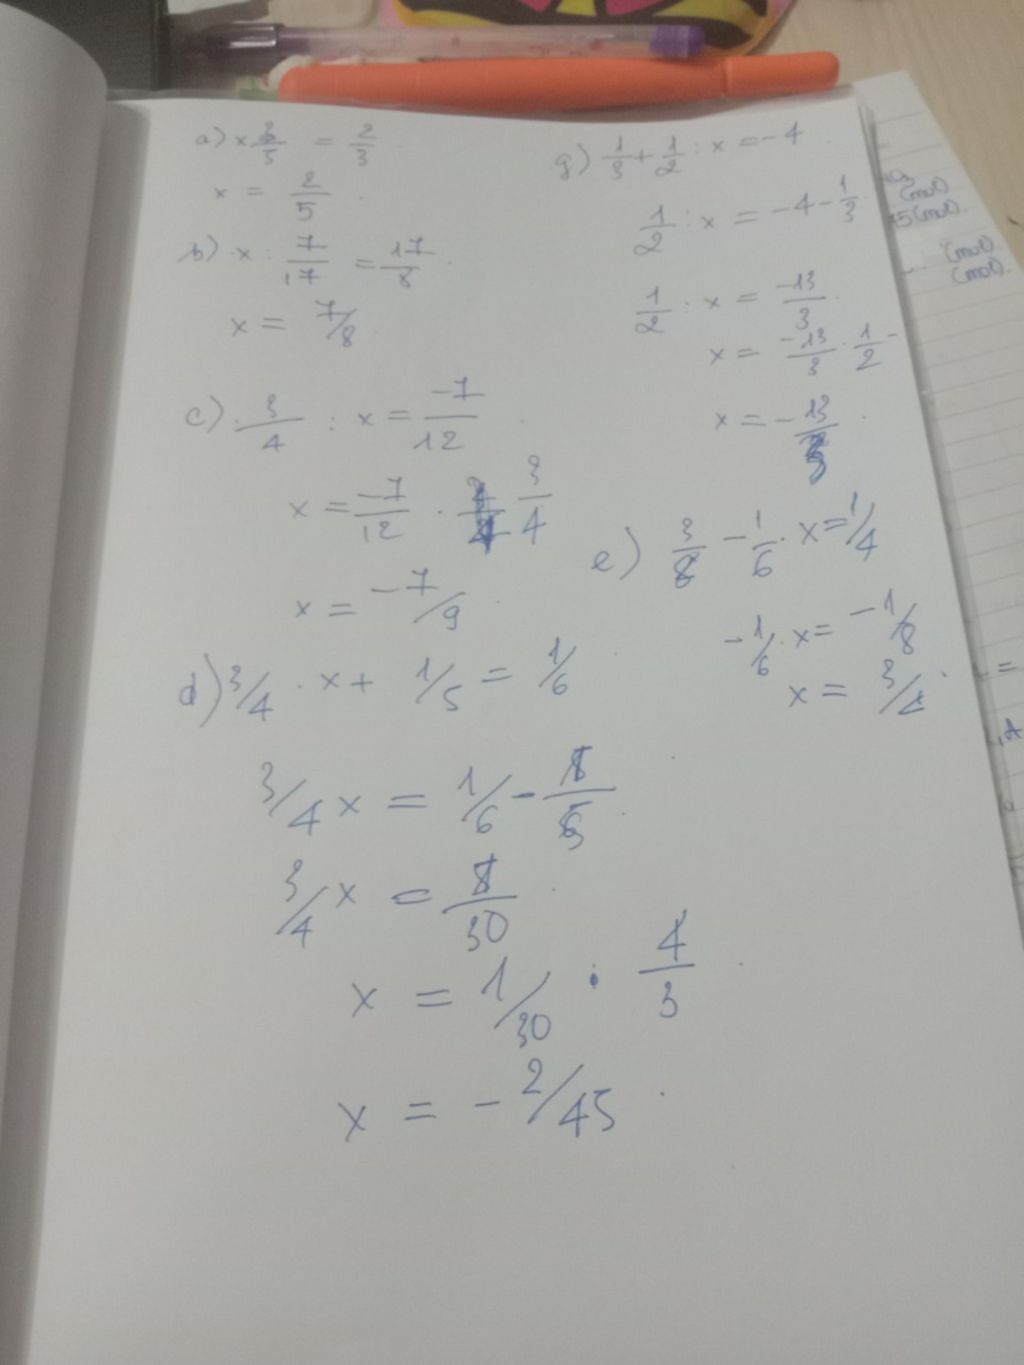 a) x 3/5 = 2/3
x = 2/5
b) x : 7/17 = 17/8
x = 7/8
c) 3/4 : x = -7/12
x = -7/12 . 3/4
x = -7/9
d) 3/4 . x + 1/5 = 1/6
3/4 x = 1/6 - 1/5
3/4 x = 1/30
x = 1/30 . 4/3
x = - 2/45
g) 1/3 + 1/2 : x = -4
1/2 : x = -4 - 1/3
1/2 : x = -13/3
x = -13/3 . 1/2
x = - 13/
e) 3/8 - 1/6 . x = 1/4
- 1/6 . x = - 1/8
x = 3/4
(mol)
5 (mol)
(mol)
(mol)
=